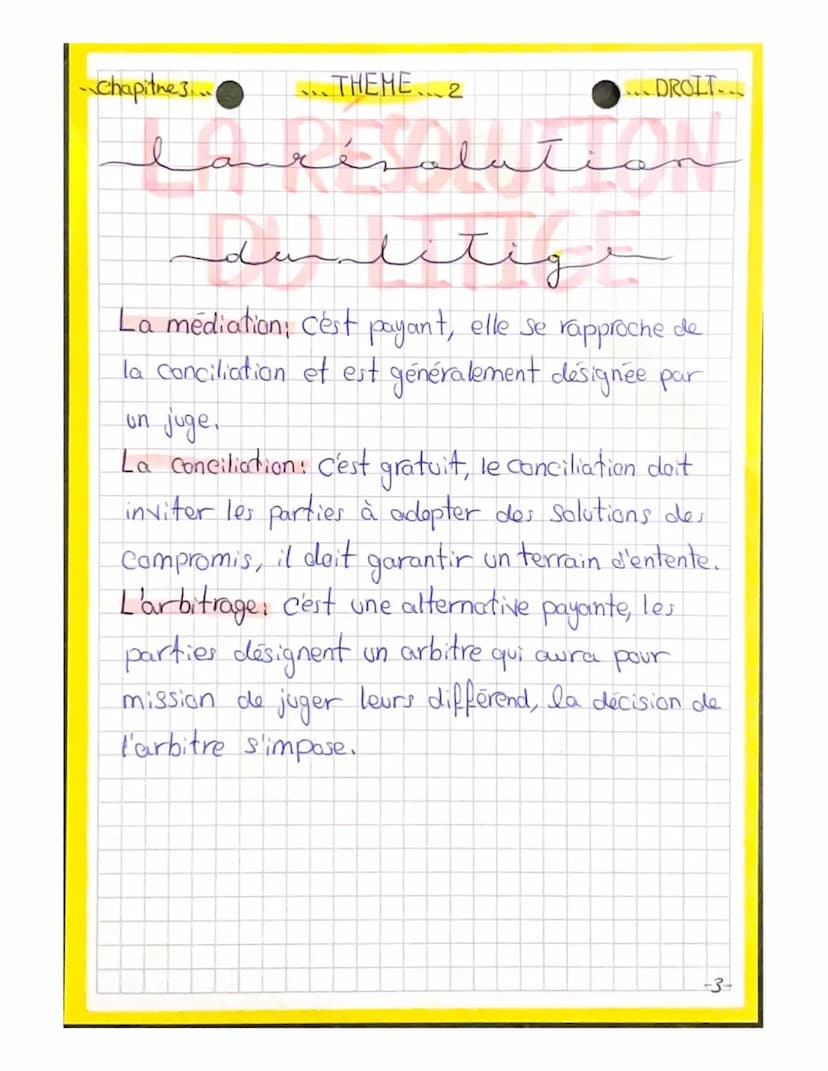 Chapitre 3
THEME 2
DROIT
LA RÉSOLUTION
la résolution
DU LITIGE
du litige
La médiation: c'est payant, elle se rapproche de
la conciliation et est généralement désignée par
un juge.
La conciliation: c'est gratuit, le conciliation doit
inviter les parties à adopter des solutions des
compromis, il doit garantir un terrain d'entente.
L'arbitrage: c'est une alternative payante, les
parties désignent un arbitre qui aura pour
mission de juger leurs différend, la décision de
l'arbitre s'impose.
-3-